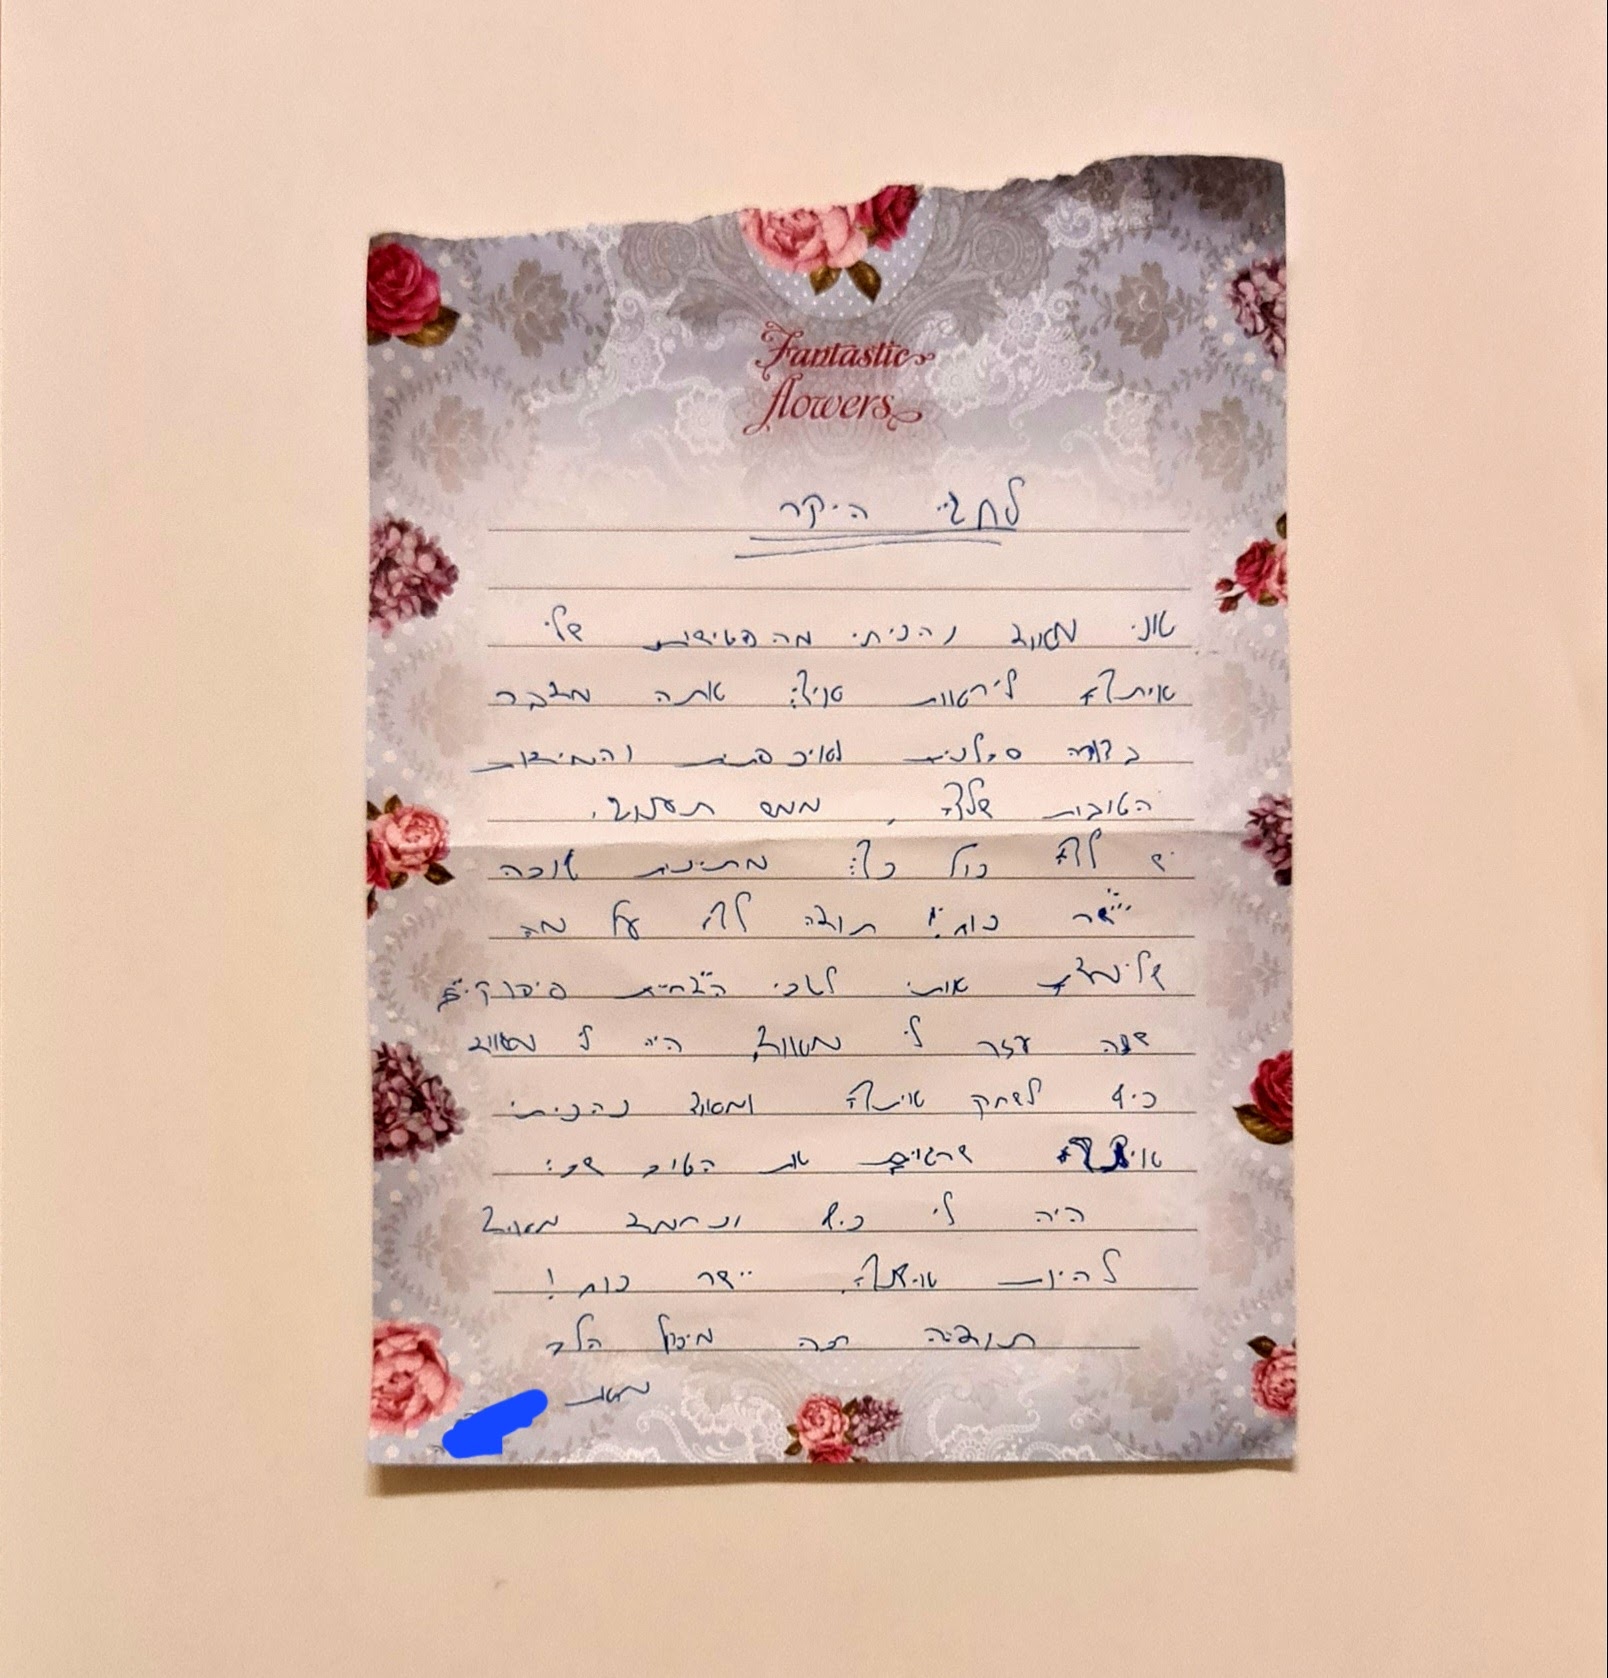 Fantastic
flowers
לחגי היקר
אני מאוד נהניתי מהפטישות שלי
איתך לראות אניך אתה מדבר
בצורה סבלנית ואיכפתית והמידות
הטובות שלך, ממש תענוג.
יש לך כול כך מתינות טובה
יישר כוח! תודה לך על מה
שלימדת אותי לגבי הצחית פירוקים
שזה עזר לי מאוד, היה לי מאוד
כיף לשחק איתך ומאוד נהניתי
איתך שרואים את הטוב שבי
היה לי כיף ונחמד מאוד
להיות איתך. יישר כוח!
תודה רבה מיכול הלב
מאת